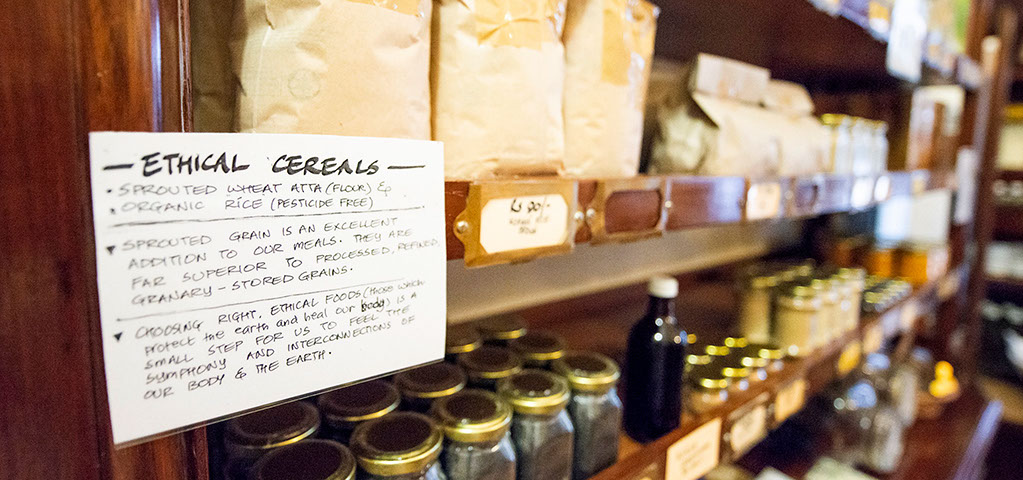 — ETHICAL CEREALS —
• SPROUTED WHEAT ATTA (FLOUR) &
• ORGANIC RICE (PESTICIDE FREE)
▾ SPROUTED GRAIN IS AN EXCELLENT
ADDITION TO OUR MEALS. THEY ARE
FAR SUPERIOR TO PROCESSED, REFINED,
GRANARY - STORED GRAINS.
▾ CHOOSING RIGHT, ETHICAL FOODS (those which
protect the earth and heal our body) IS A
SMALL STEP FOR US TO FEEL THE
SYMPHONY AND INTERCONNECTIONS OF
OUR BODY & THE EARTH.
Rs 90/-